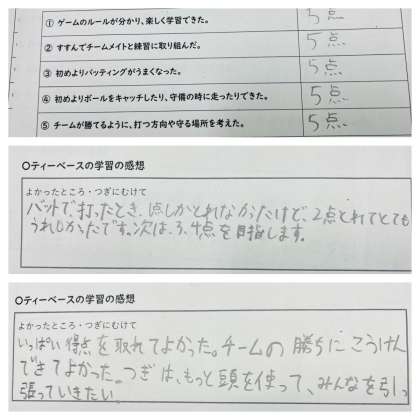 ① ゲームのルールが分かり、楽しく学習できた。 5点
② すすんでチームメイトと練習に取り組んだ。 5点
③ 初めよりバッティングがうまくなった。 5点
④ 初めよりボールをキャッチしたり、守備の時に走ったりできた。 5点
⑤ チームが勝てるように、打つ方向や守る場所を考えた。 5点
○ティーベースの学習の感想
よかったところ・つぎにむけて
バットで、打ったとき、1点しかとれなかったけど、2点とれてとても
うれしかったです。次は、3、4点を目指します。
○ティーベースの学習の感想
よかったところ・つぎにむけて
いっぱい得点を取れてよかった。チームの勝ちにこうけん
できてよかった。つぎは、もっと頭を使って、みんなを引っ
張っていきたい。